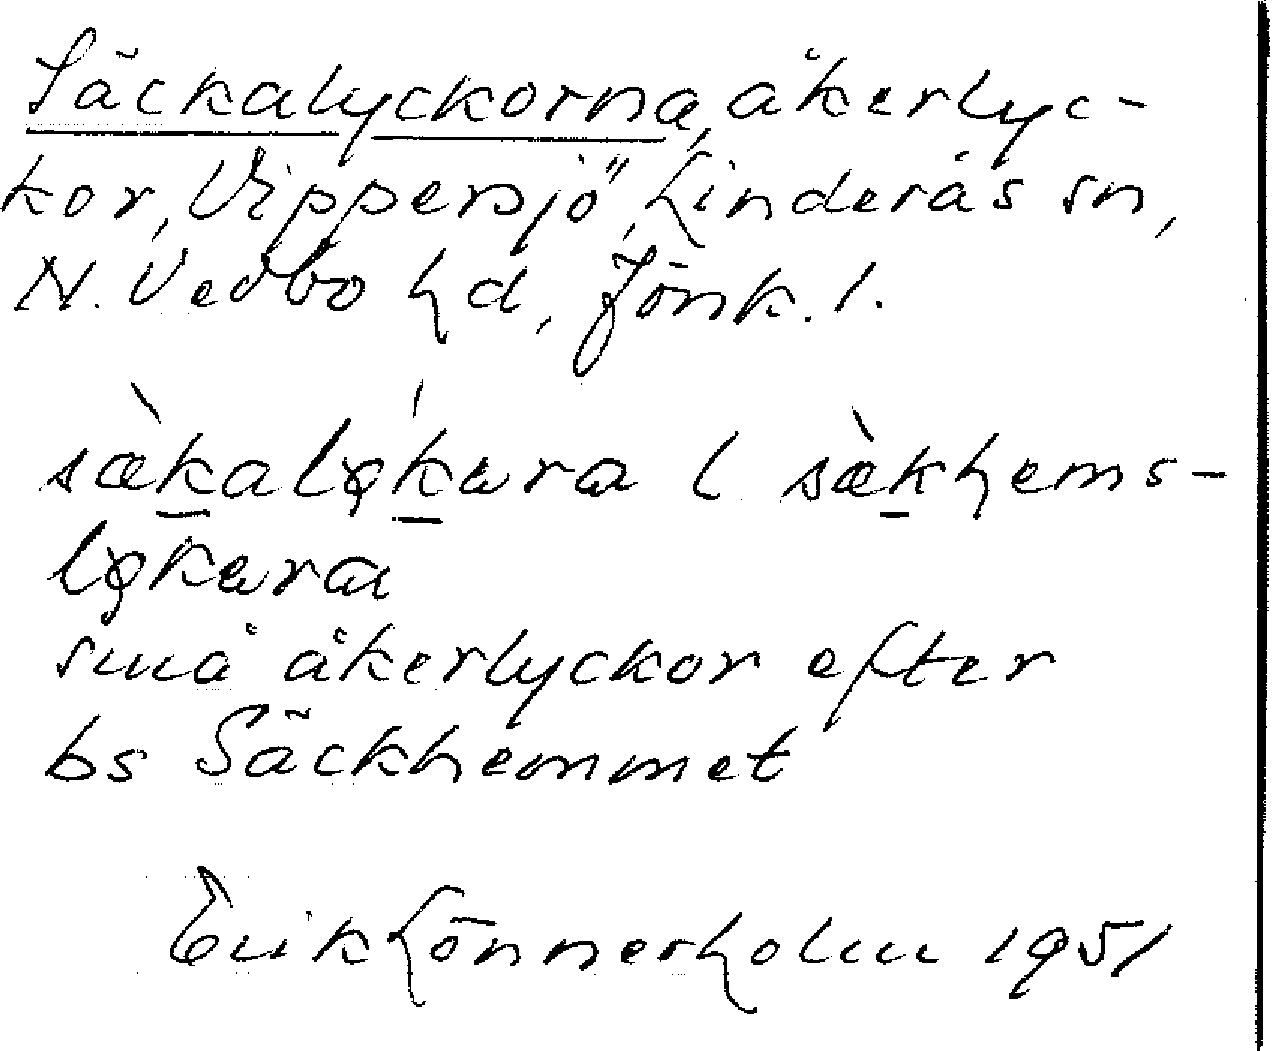 Säckalyckorna, åkerlyc-
kor, Vippersjö, Linderås sn,
N. Vedbo hd, Jönk. l.
sæ̀kalykara l sæ̀khems-
lykara
små åkerlyckor efter
bs Säckhemmet
Erik Lönnerholm 1951